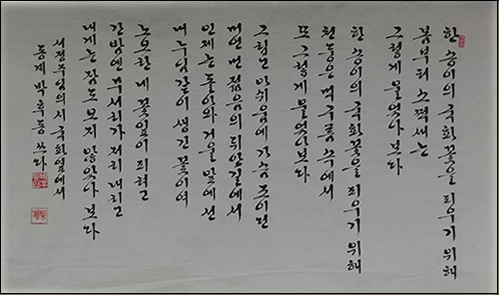 한 송이의 국화꽃을 피우기 위해
봄부터 소쩍새는
그렇게 울었나 보다
한 송이의 국화꽃을 피우기 위해
천둥은 먹구름 속에서
또 그렇게 울었나보다
그립고 아쉬움에 가슴 조이던
머언 먼 젊음의 뒤안길에서
인제는 돌아와 거울 앞에 선
내 누님같이 생긴 꽃이여
노오란 네 꽃잎이 피려고
간밤엔 무서리가 저리 내리고
내게는 잠도 오지 않았나 보다
서정주님의 시 국화 옆에서
동계 박후동 쓰다